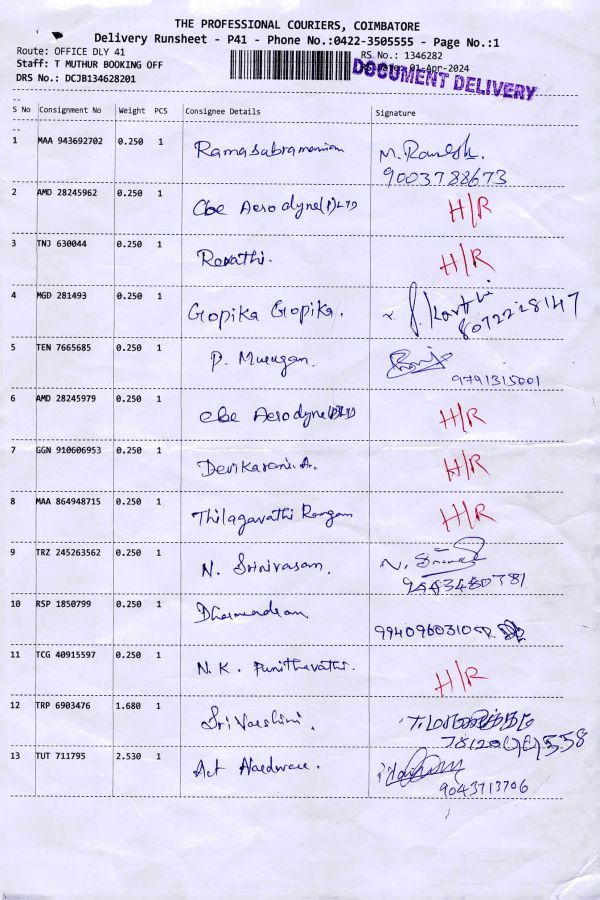 THE PROFESSIONAL COURIERS, COIMBATORE
Delivery Runsheet - P41 - Phone No.:0422-3505555 - Page No.:1
Route: OFFICE DLY 41 RS No.: 1346282
Staff: T MUTHUR BOOKING OFF 01-Apr-2024
DOCUMENT DELIVERY
DRS No.: DCJB134628201
--
S No Consignment No Weight PCS Consignee Details Signature
--
1 MAA 943692702 0.250 1 Ramasubramanian M. Ramesh.
9003788673
2 AMD 28245962 0.250 1 Cbe Aerodyne(P)LTD H/R
3 TNJ 630044 0.250 1 Revathi. H/R
4 MGD 281493 0.250 1 Gopika Gopika.
8072228147
5 TEN 7665685 0.250 1 P. Murugan.
9791315001
6 AMD 28245979 0.250 1 cbe Aerodyne(P)LTD H/R
7 GGN 910606953 0.250 1 Devikarani. A. H/R
8 MAA 864948715 0.250 1 Thilagavathi Rangam H/R
9 TRZ 245263562 0.250 1 N. Srinivasan.
10 RSP 1850799 0.250 1
11 TCG 40915597 0.250 1 N. K. Punithavathi. H/R
12 TRP 6903476 1.680 1 Sri Varshini.
13 TUT 711795 2.530 1 Act Hardware.
9043713706